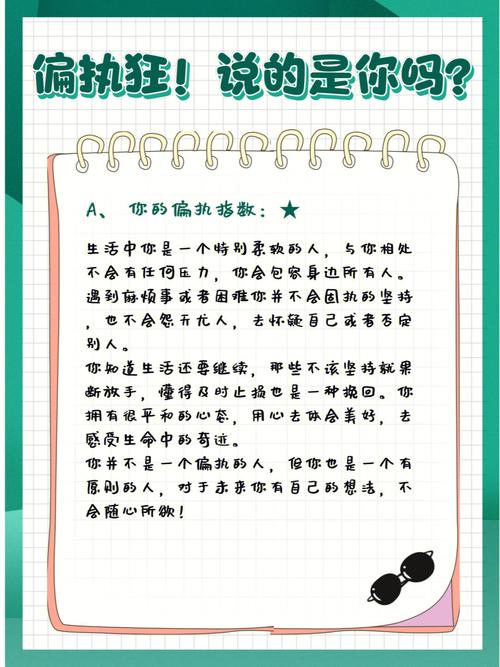 偏执狂！说的是你吗？
A、你的偏执指数：★
生活中你是一个特别柔软的人，与你相处
不会有任何压力，你会包容身边所有人。
遇到麻烦事或者困难你并不会固执的坚持
，也不会怨天尤人，去怀疑自己或者否定
别人。
你知道生活还要继续，那些不该坚持就果
断放手，懂得及时止损也是一种挽回。你
拥有很平和的心态，用心去体会美好，去
感受生命中的奇迹。
你并不是一个偏执的人，但你也是一个有
原则的人，对于未来你有自己的想法，不
会随心所欲！